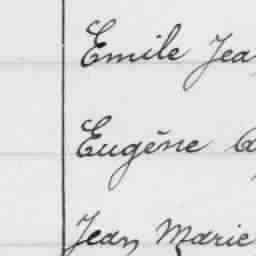 Emile Jea
Eugène
Jean Marie